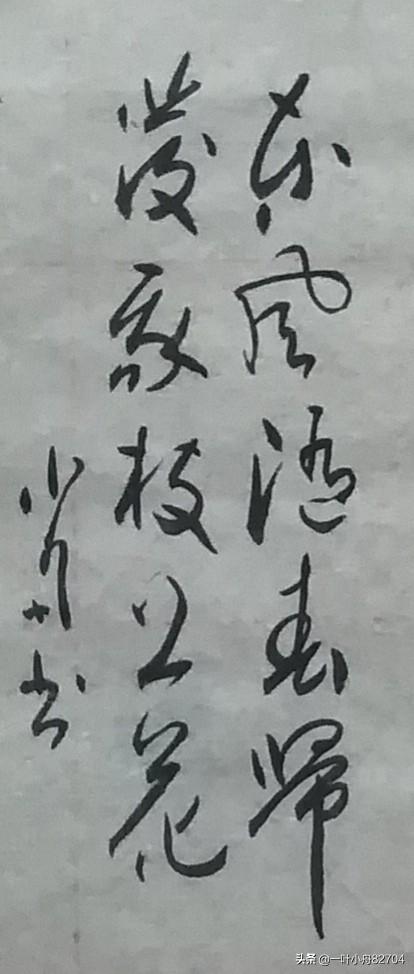 东风随春归
发我枝上花
小舟书
头条 @一叶小舟82704